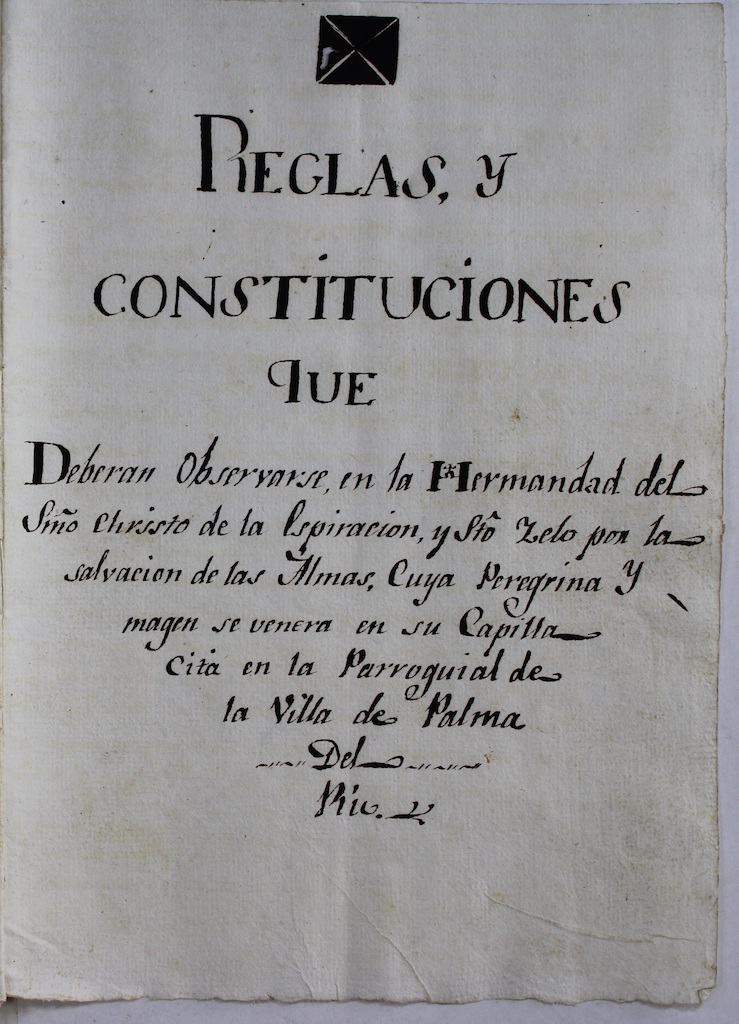 REGLAS, Y
CONSTITUCIONES
QUE
Deberan Observarse, en la Hermandad del
Smõ Christo de la Espiracion, y Stõ Zelo por la
salvacion de las Almas, Cuya Peregrina Y
magen se venera en su Capilla
cita en la Parroquial de
la Villa de Palma
Del
Rio.